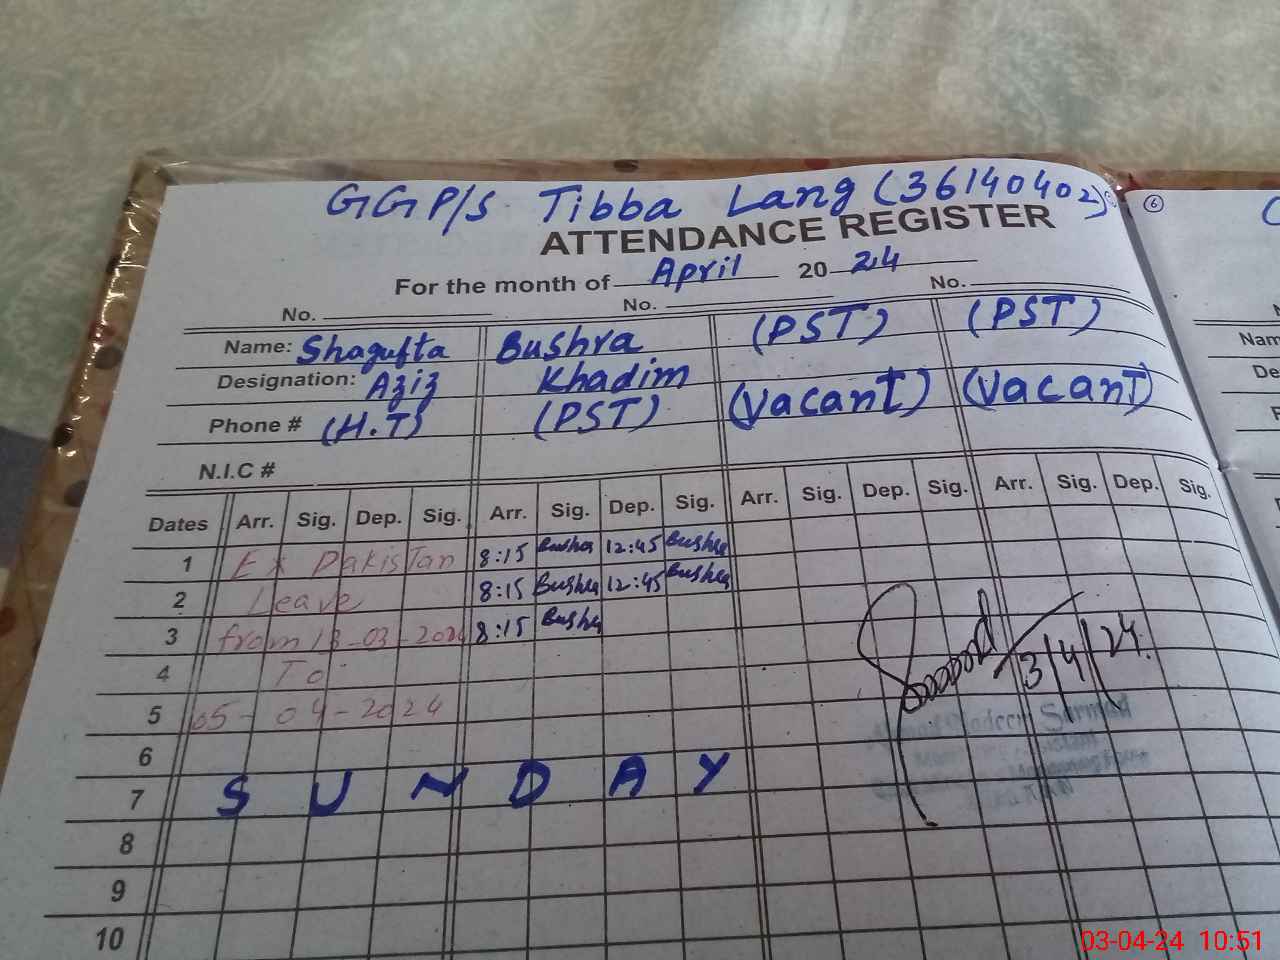 GGP/S Tibba Lang (36140402)
ATTENDANCE REGISTER
6
For the month of April 2024
No. No. No.
Name: Shagufta Bushra (PST) (PST)
Designation: Aziz Khadim (Vacant) (Vacant)
Phone # (H.T) (PST)
N.I.C #
Dates Arr. Sig. Dep. Sig. Arr. Sig. Dep. Sig. Arr. Sig. Dep. Sig. Arr. Sig. Dep. Sig.
1 Ex Pakistan 8:15 Bushra 12:45 Bushra
2 Leave 8:15 Bushra 12:45 Bushra
3 from 18-03-2024 8:15 Bushra
4 To
5 05-04-2024
3/4/24.
Sarmad
6
7 SUNDAY
8
9
10
03-04-24 10:51